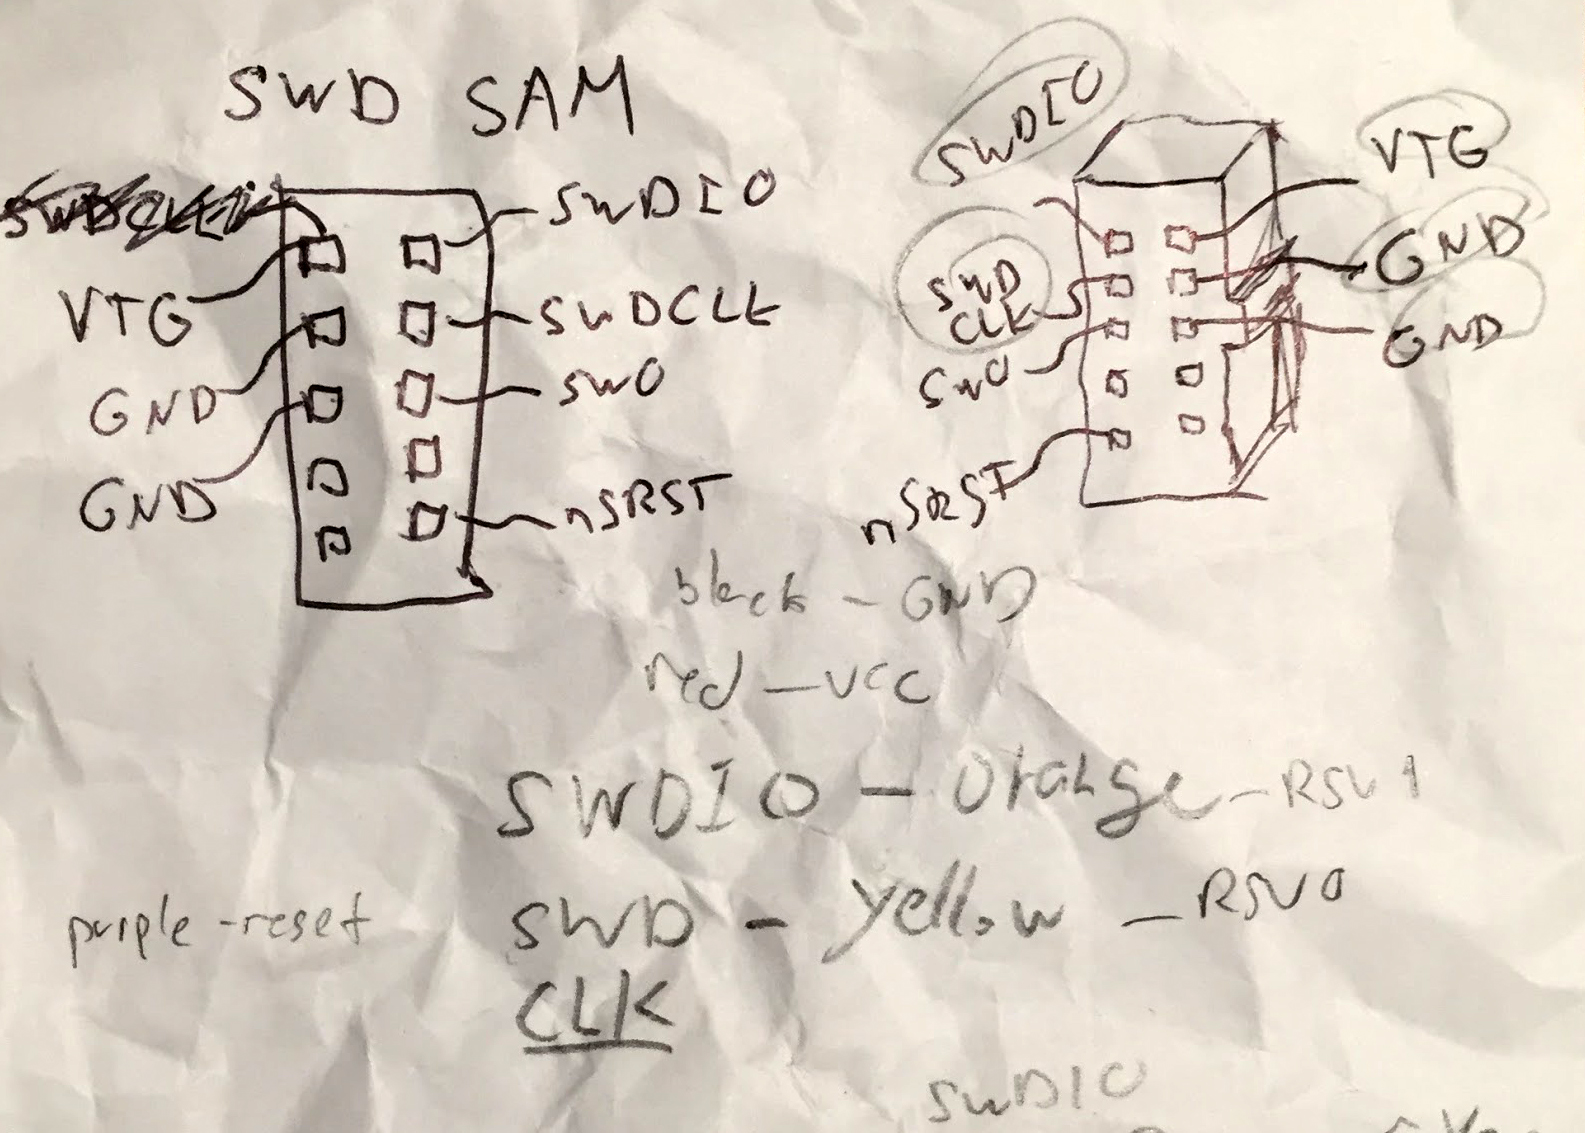 SWD SAM
SWDIO
VTG
SWDCLK
GND
SWO
GND
nSRST
SWDIO
VTG
SWD
CLK
GND
SWO
GND
nSRST
black - GND
red - VCC
SWDIO - Orange - RSV1
purple - reset
SWD - yellow - RSV0
CLK
SWDIO